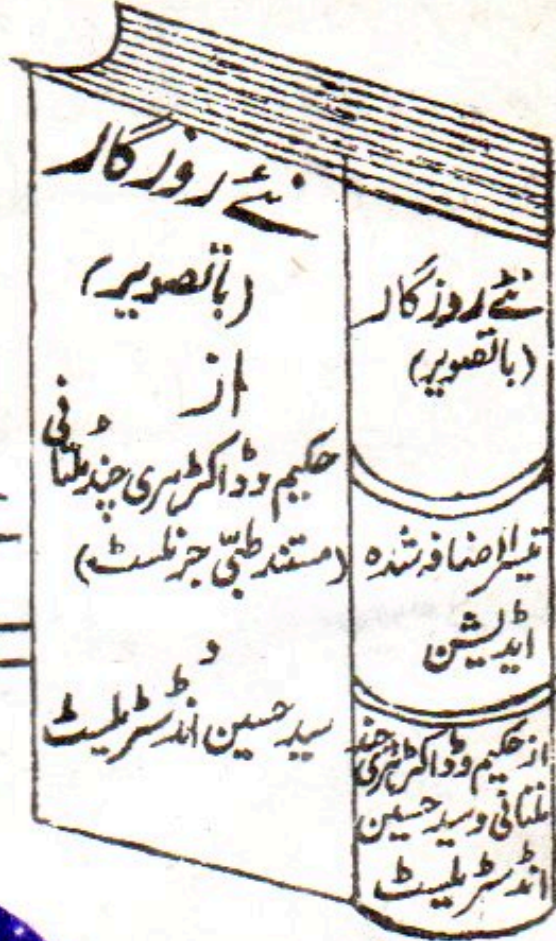 نئے روزگار
(باتصویر)
از
حکیم و ڈاکٹر ہری چند ملتانی
(مستند طبّی جرنلسٹ)
و
سید حسین انڈسٹریلیسٹ
نئے روزگار
(باتصویر)
تیسرا اضافہ شدہ
ایڈیشن
از حکیم و ڈاکٹر ہری چند
ملتانی و سید حسین
انڈسٹریلیسٹ